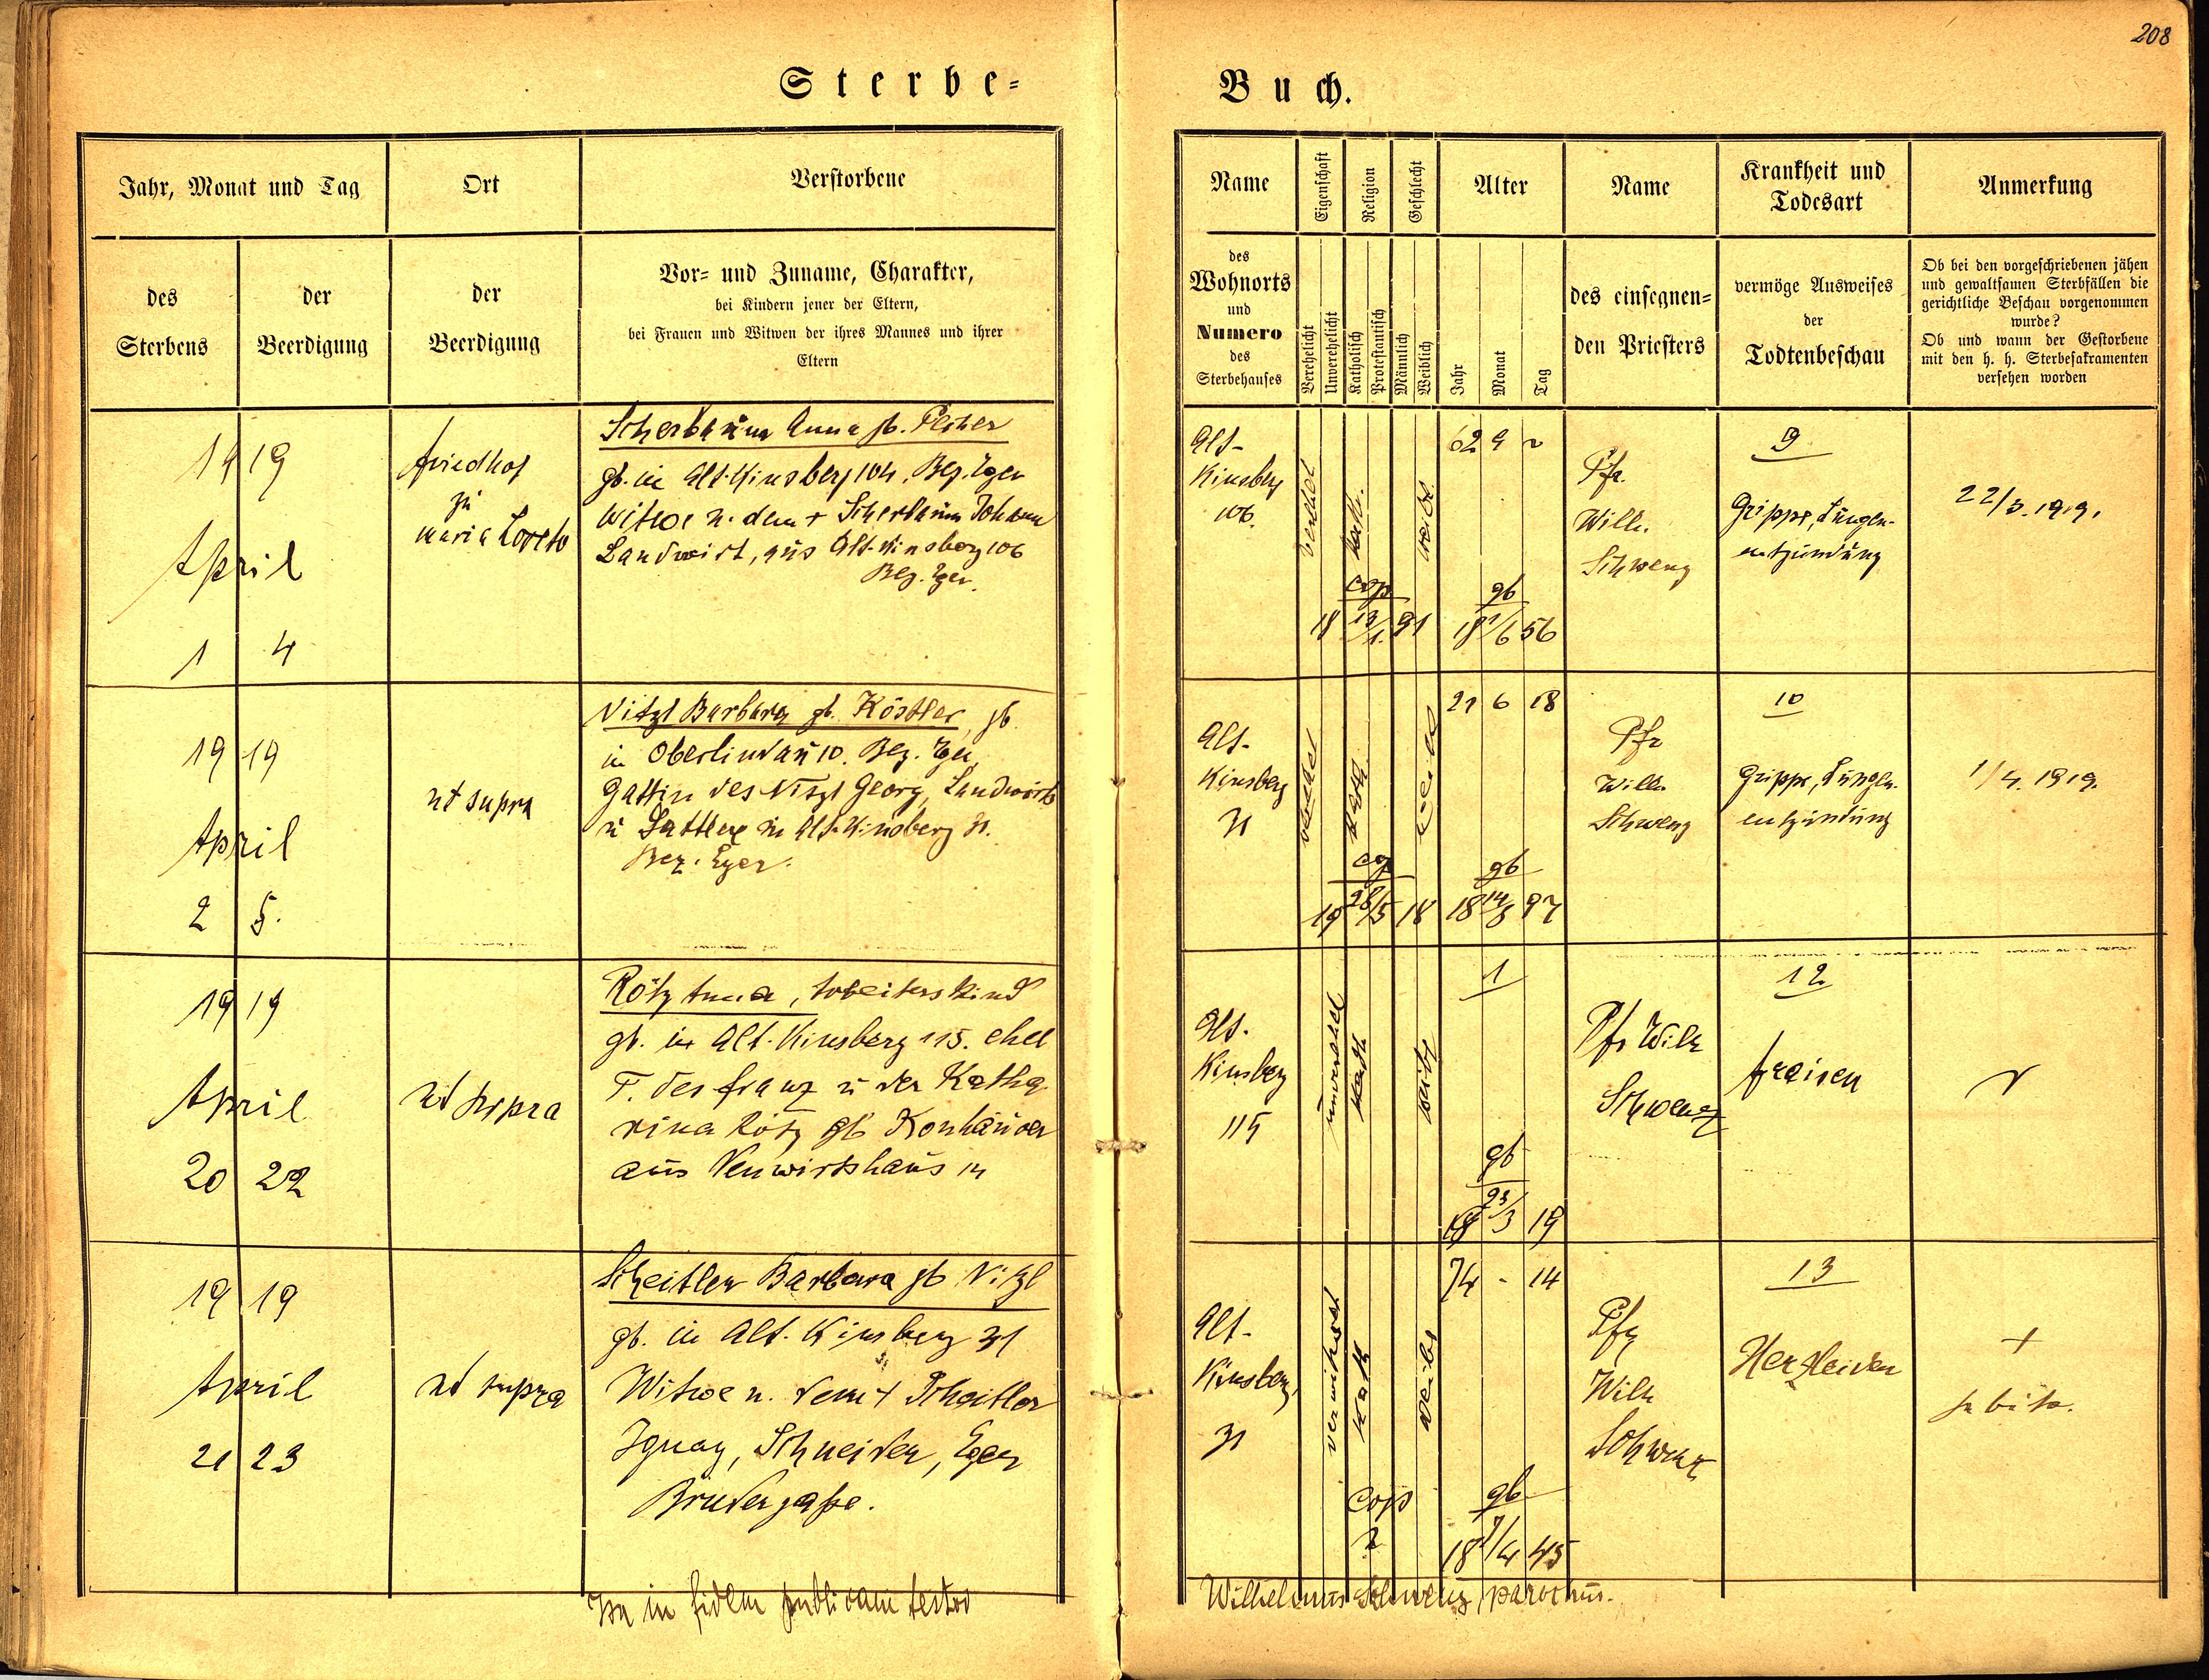 208
Sterbe=
Buch.
Jahr, Monat und Tag
Ort
Verstorbene
des
Sterbens
der
Beerdigung
der
Beerdigung
Vor= und Zuname, Charakter,
bei Kindern jener der Eltern,
bei Frauen und Witwen der ihres Mannes und ihrer
Eltern
Name
Eigenschaft
Religion
Geschlecht
Alter
Name
Krankheit und
Todesart
Anmerkung
des
Wohnorts
und
Numero
des
Sterbehauses
Verehelicht
Unverehelicht
Katholisch
Protestantisch
Männlich
Weiblich
Jahr
Monat
Tag
des einsegnen=
den Priesters
vermöge Ausweises
der
Todtenbeschau
Ob bei den vorgeschriebenen jähen
und gewaltsamen Sterbfällen die
gerichtliche Beschau vorgenommen
wurde?
Ob und wann der Gestorbene
mit den h. h. Sterbesakramenten
versehen worden
19 19
April
1 4
Friedhof
zu
Maria Loreto
Scherbaum Anna gb.
gb. in Alt-Kinsberg 104, Bez. Eger
Witwe n. dem + Scherbaum Johann
Landwirt, aus Alt-Kinsberg 106
Bez. Eger.
Alt-
Kinsberg
106.
kath.
weibl.
cop
18 13/1. 91
62 9
gb
18 1/6 56
Pfr.
Wilh.
Schwenz
9
Grippe, Lungen-
entzündung
22/3. 1919.
19 19
April
2 5.
ut supra
Nitzl Barbara gb. Köstler, gb.
in Oberlindau 10. Bez. Eger,
Gattin des Nitzl Georg, Landwirts
u Sattlers in Alt-Kinsberg 31.
Bez. Eger.
Alt-
Kinsberg
31
kath.
weibl
cop
19 28/5 18
21 6 18
gb
18 14/8 97
Pfr
Wilh.
Schwenz
10
Grippe, Lungen-
entzündung
1/4. 1919.
19 19
April
20 22
ut supra
Rötz Anna, Arbeiterskind
gb. in Alt-Kinsberg 115. ehel
T. des Franz u der Katha
rina Rötz gb Konhäuser
aus Neuwirtshaus 14
Alt-
Kinsberg
115
unverehel
kath
weibl
1
gb
23/3 19
Pfr Wilh
Schwenz
12
Fraisen
19 19
April
21 23
ut supra
Scheitler Barbara gb Nitzl
gb. in Alt-Kinsberg 31
Witwe n. dem + Scheitler
Ignaz, Schneider, Eger
Brudergasse.
Alt-
Kinsberg,
31
verwitwet
kath
weibl
cop
?
74 - 14
gb
18 7/4 45
Pfr
Wilh
Schwenz
13
Herzleiden
+
subito.
Ita in fidem publicam testor
Wilhelmus Schwenz, parochus.